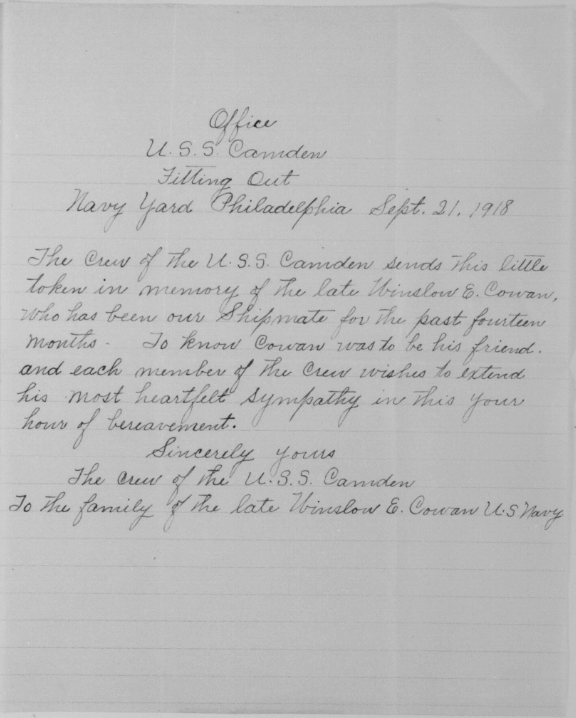 Office
U.S.S. Camden
Fitting Out
Navy Yard Philadelphia Sept. 21, 1918
The Crew of the U.S.S. Camden sends this little
token in memory of the late Winslow E. Cowan,
who has been our Shipmate for the past fourteen
months. To know Cowan was to be his friend.
and each member of the Crew wishes to extend
his most heartfelt sympathy in this your
hour of bereavement.
Sincerely yours
The crew of the U.S.S. Camden
To the family of the late Winslow E. Cowan U.S Navy